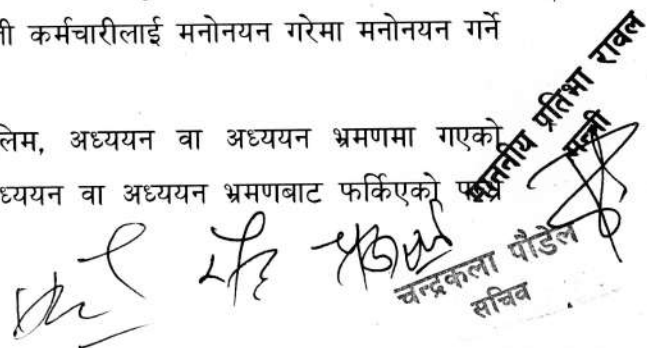 ी कर्मचारीलाई मनोनयन गरेमा मनोनयन गर्ने
लिम, अध्ययन वा अध्ययन भ्रमणमा गएको
ध्ययन वा अध्ययन भ्रमणबाट फर्किएको
माननीय प्रतिभा रावल
मन्त्री
चन्द्रकला पौडेल
सचिव